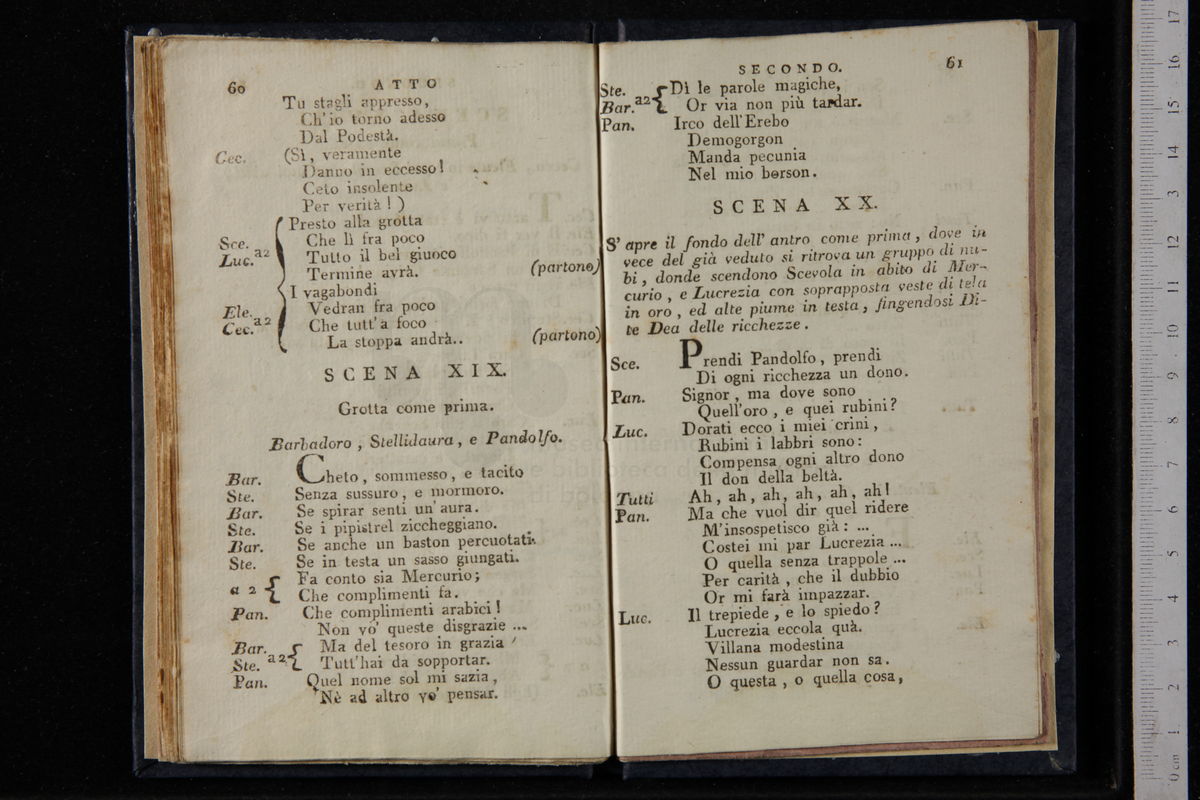 60 ATTO
Tu stagli appresso,
Ch'io torno adesso
Dal Podestà.
Cec. (Sì, veramente
Danno in eccesso!
Ceto insolente
Per verità!)
Presto alla grotta
Sce. Che lì fra poco
Luc. a2 Tutto il bel giuoco
Termine avrà. (partono)
I vagabondi
Ele. Vedran fra poco
Cec. a2 Che tutt'a foco
La stoppa andrà.. (partono)
SCENA XIX.
Grotta come prima.
Barbadoro, Stellidaura, e Pandolfo.
Bar. Cheto, sommesso, e tacito
Ste. Senza sussuro, e mormoro.
Bar. Se spirar senti un'aura.
Ste. Se i pipistrel ziccheggiano.
Bar. Se anche un baston percuotati.
Ste. Se in testa un sasso giungati.
a 2 { Fa conto sia Mercurio;
Che complimenti fa.
Pan. Che complimenti arabici!
Non vo' queste disgrazie ...
Bar. Ma del tesoro in grazia
Ste. a2 { Tutt'hai da sopportar.
Pan. Quel nome sol mi sazia,
Nè ad altro vo' pensar.
SECONDO. 61
Ste. Dì le parole magiche,
Bar. a2 { Or via non più tardar.
Pan. Irco dell'Erebo
Demogorgon
Manda pecunia
Nel mio borson.
SCENA XX.
S' apre il fondo dell' antro come prima, dove in
vece del già veduto si ritrova un gruppo di nu-
bi, donde scendono Scevola in abito di Mer-
curio, e Lucrezia con soprapposta veste di tela
in oro, ed alte piume in testa, fingendosi Di-
te Dea delle ricchezze.
Sce. Prendi Pandolfo, prendi
Di ogni ricchezza un dono.
Pan. Signor, ma dove sono
Quell'oro, e quei rubini?
Luc. Dorati ecco i miei crini,
Rubini i labbri sono:
Compensa ogni altro dono
Il don della beltà.
Tutti Ah, ah, ah, ah, ah, ah!
Pan. Ma che vuol dir quel ridere
M'insospetisco già: ...
Costei mi par Lucrezia ...
O quella senza trappole ...
Per carità, che il dubbio
Or mi farà impazzar.
Luc. Il trepiede, e lo spiedo?
Lucrezia eccola quà.
Villana modestina
Nessun guardar non sa.
O questa, o quella cosa,
0 cm 1 2 3 4 5 6 7 8 9 10 11 12 13 14 15 16 17